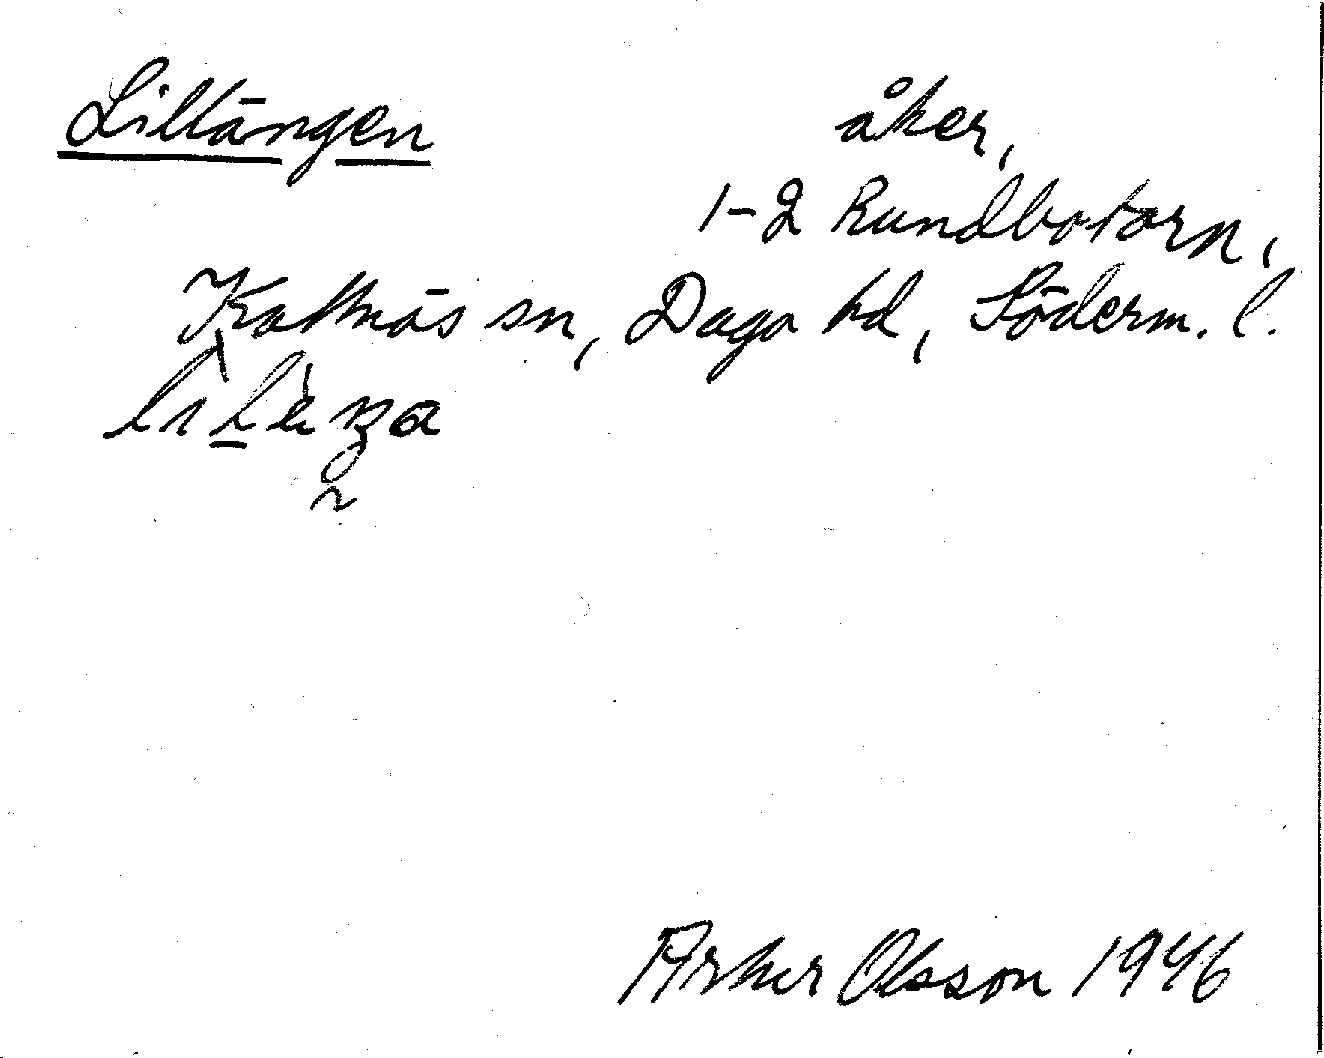 Lillängen åker,
1-2 Rundbotorp,
Kattnäs sn, Daga hd, Söderm. l.
Olsson 1946